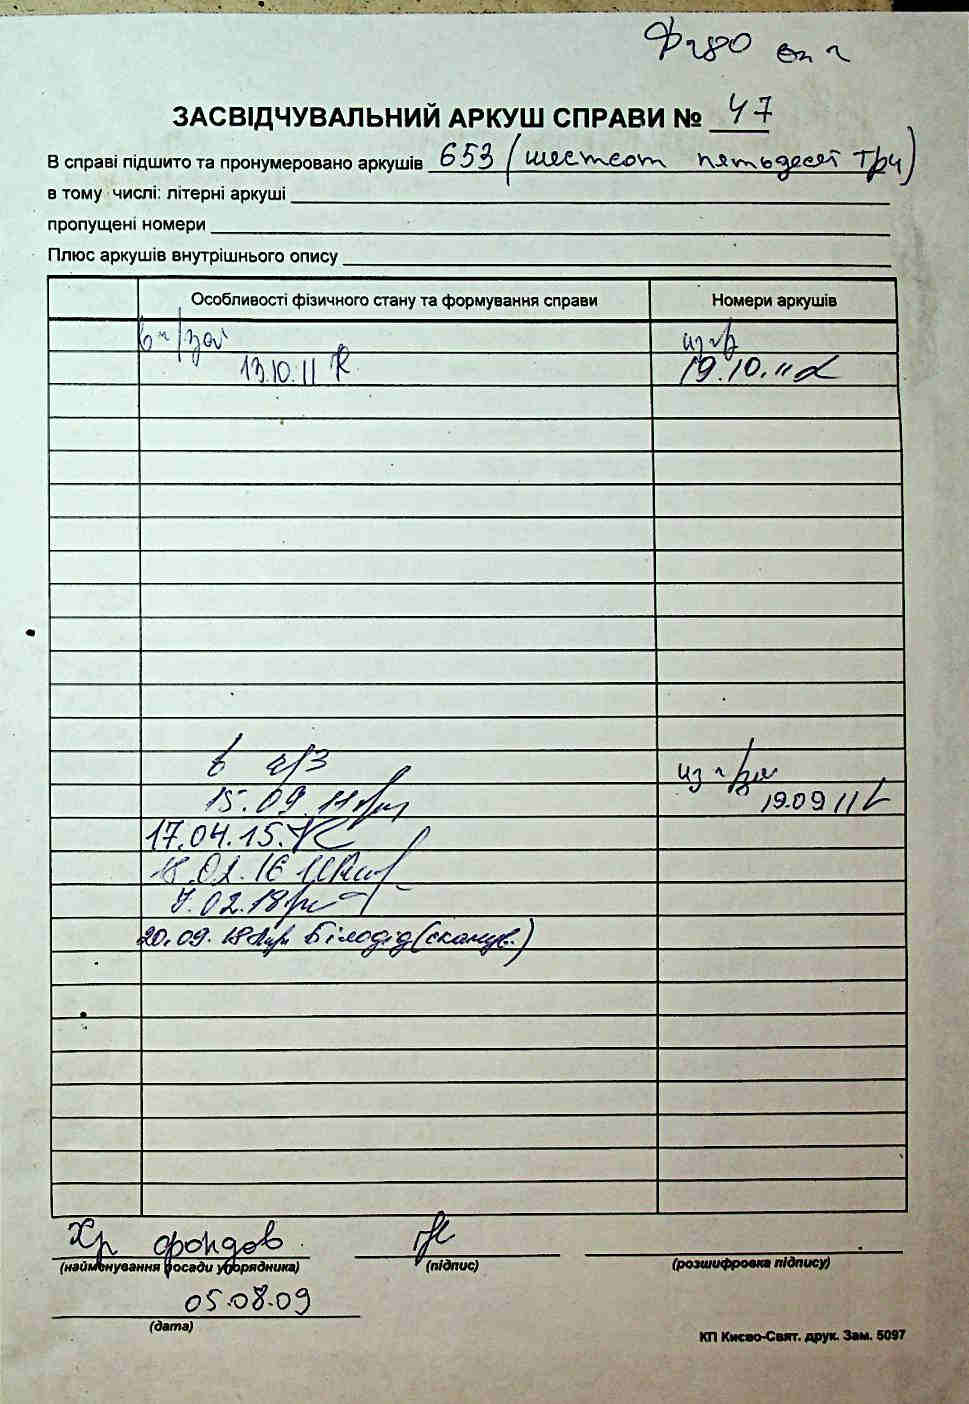 Ф280 оп 2
ЗАСВІДЧУВАЛЬНИЙ АРКУШ СПРАВИ № 47
В справі підшито та пронумеровано аркушів 653 (шестсот пятьдесят три)
в тому числі: літерні аркуші
пропущені номери
Плюс аркушів внутрішнього опису
Особливості фізичного стану та формування справи Номери аркушів
13.10.11 19.10.11
в ч/з
из
15.09.11 19.09 11
17.04.15.
18.02.16
7.02.18
20.09.18 Білодід (сканув.)
Хр фондов
(найменування посади упорядника) (підпис) (розшифровка підпису)
05.08.09
(дата)
КП Києво-Свят. друк. Зам. 5097